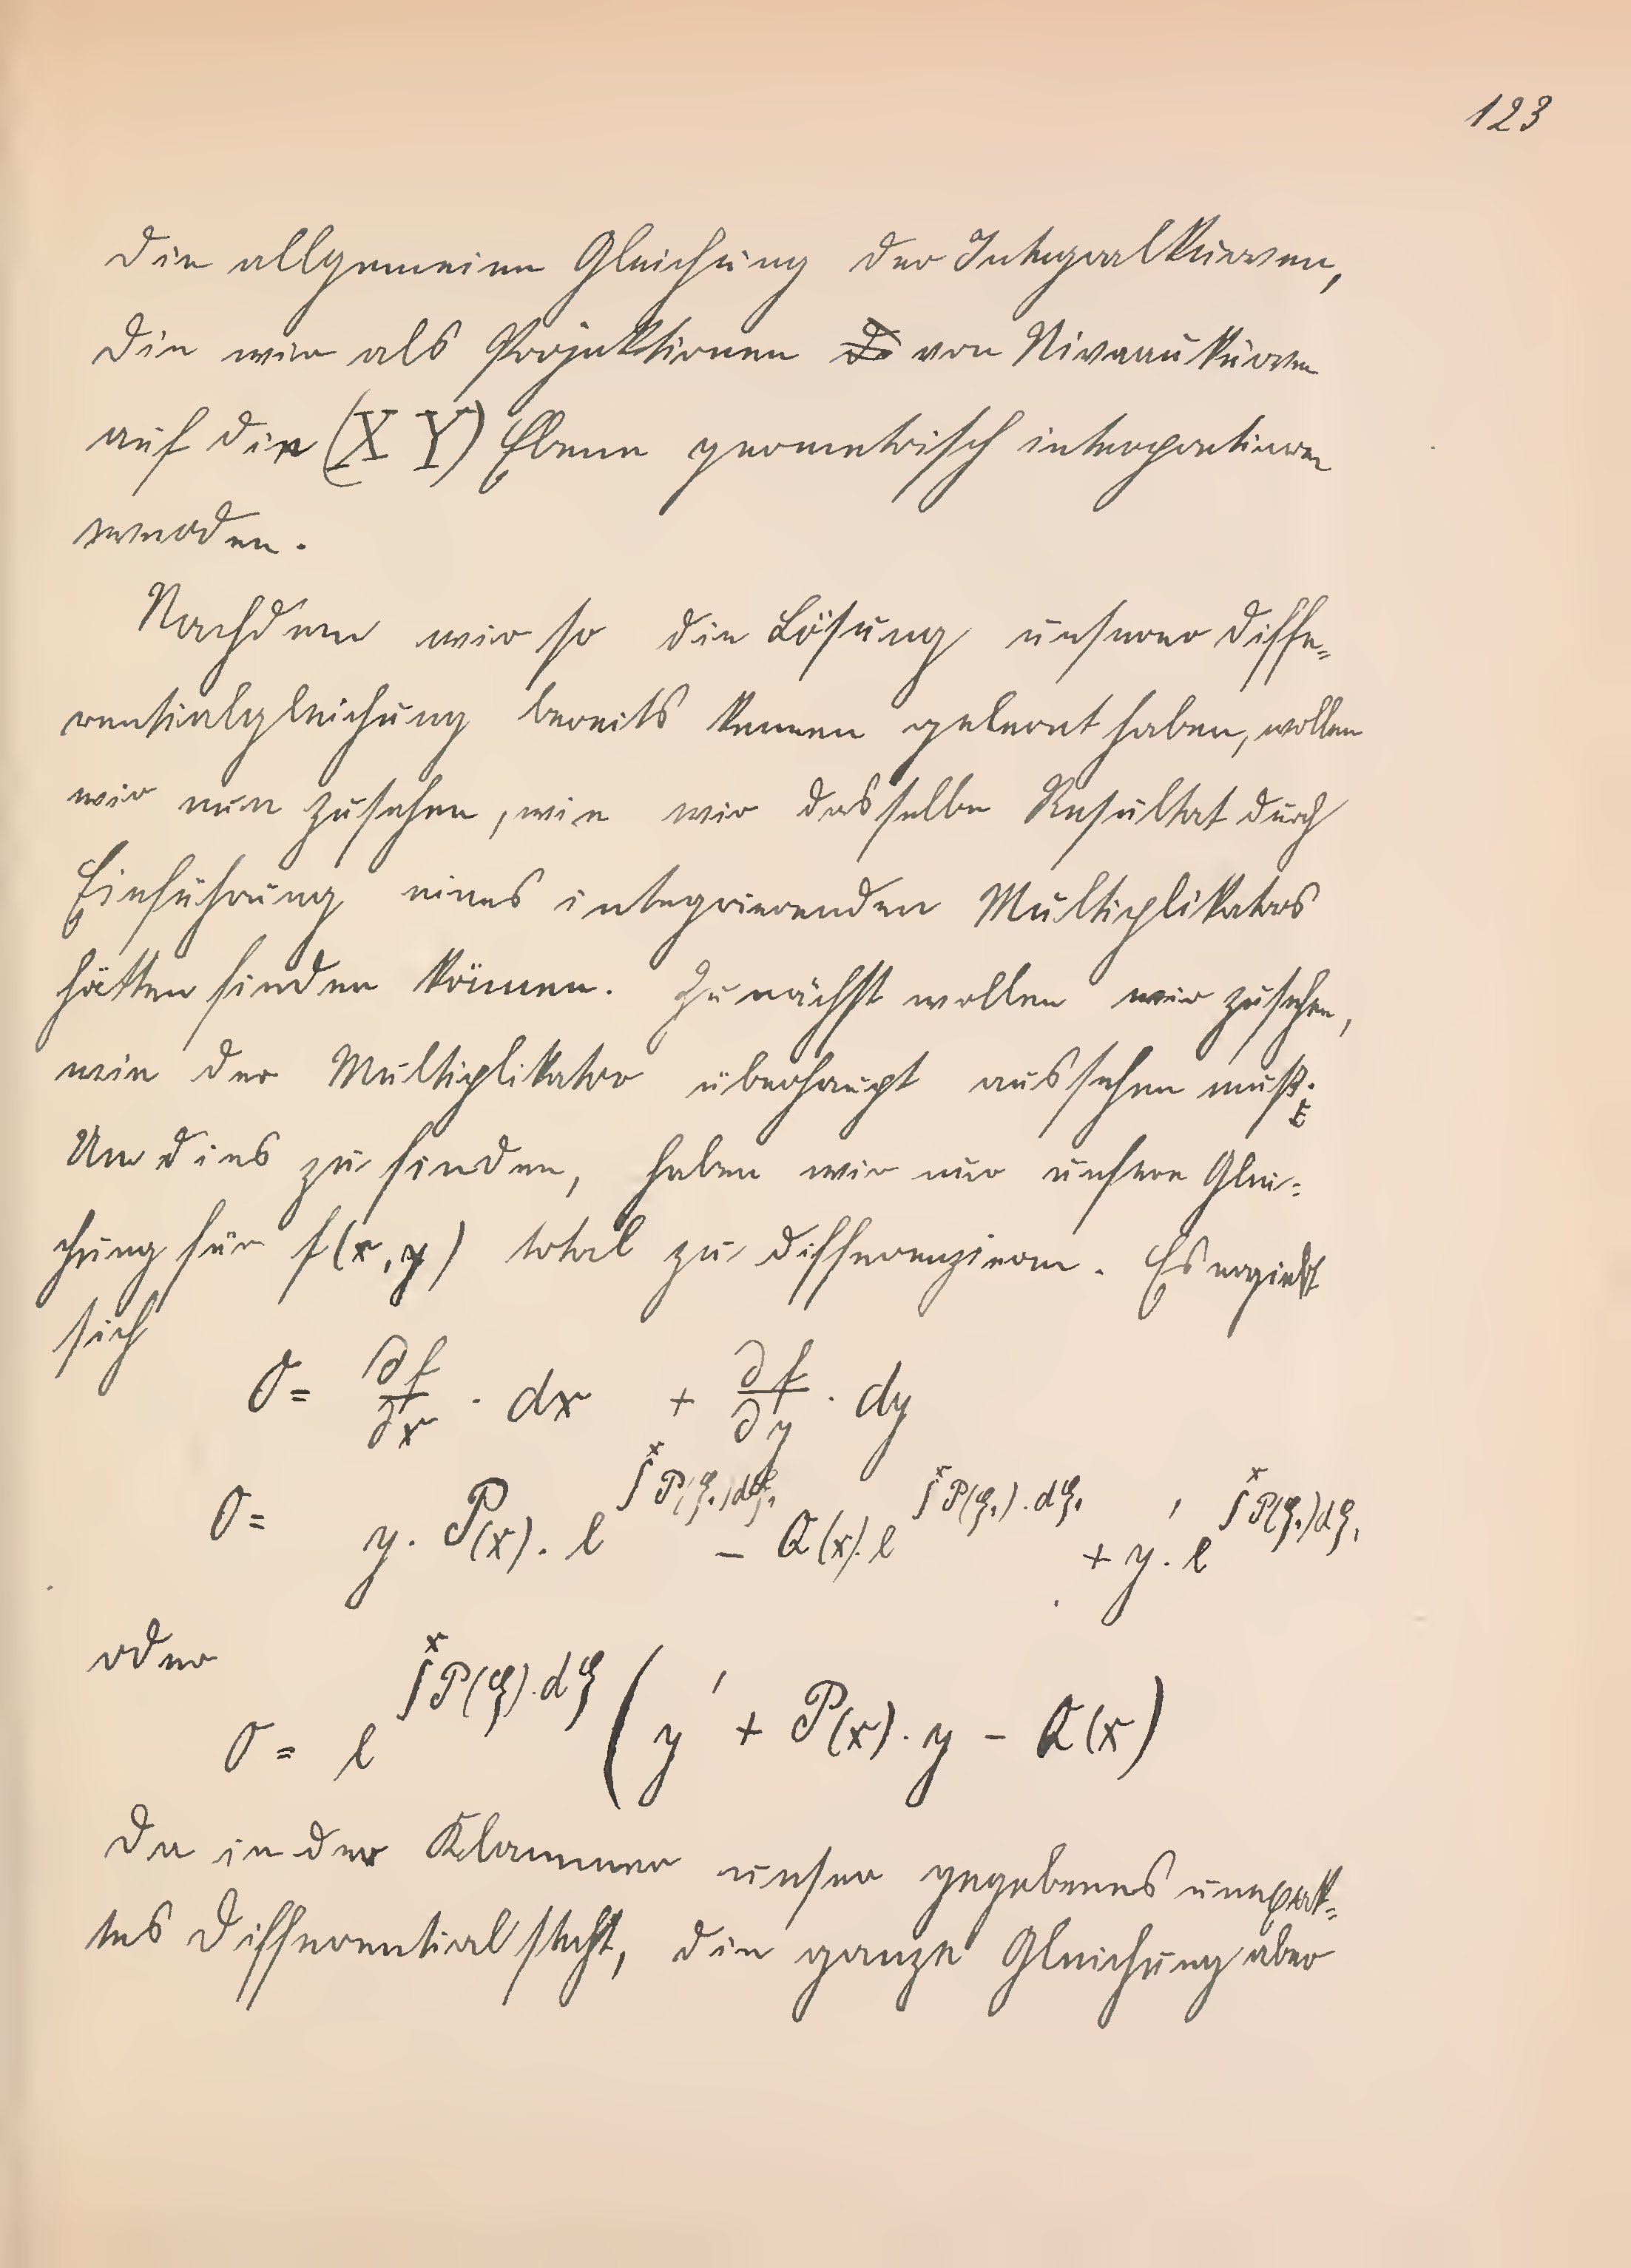 123
die allgemeine Gleichung der Integralkurven,
die wir als Projektionen von Niveaukurven
auf die (X Y) Ebene geometrisch interpretieren
werden.
Nachdem wir so die Lösung unserer Diffe-
rentialgleichung bereits kennen gelernt haben, wollen
wir nun zusehen, wie wir dasselbe Resultat durch
Einführung eines integrierenden Multiplikators
hätten finden können. Zunächst wollen wir zusehen,
wie der Multiplikator überhaupt aussehen muß.
Um dies zu finden, haben wir nur unsere Glei-
chung für f(x,y) total zu differenzieren. Es ergiebt
sich
0 = ∂f/∂x · dx + ∂f/∂y · dy
0 = y · P(x) · e^{∫^x P(ξ₁)dξ₁} − Q(x) · e^{∫^x P(ξ₁)·dξ₁} + y' · e^{∫^x P(ξ₁)dξ₁}
oder
0 = e^{∫^x P(ξ)·dξ} ( y' + P(x) · y − Q(x) )
Da in der Klammer unser gegebenes unexak-
tes Differential steht, die ganze Gleichung aber